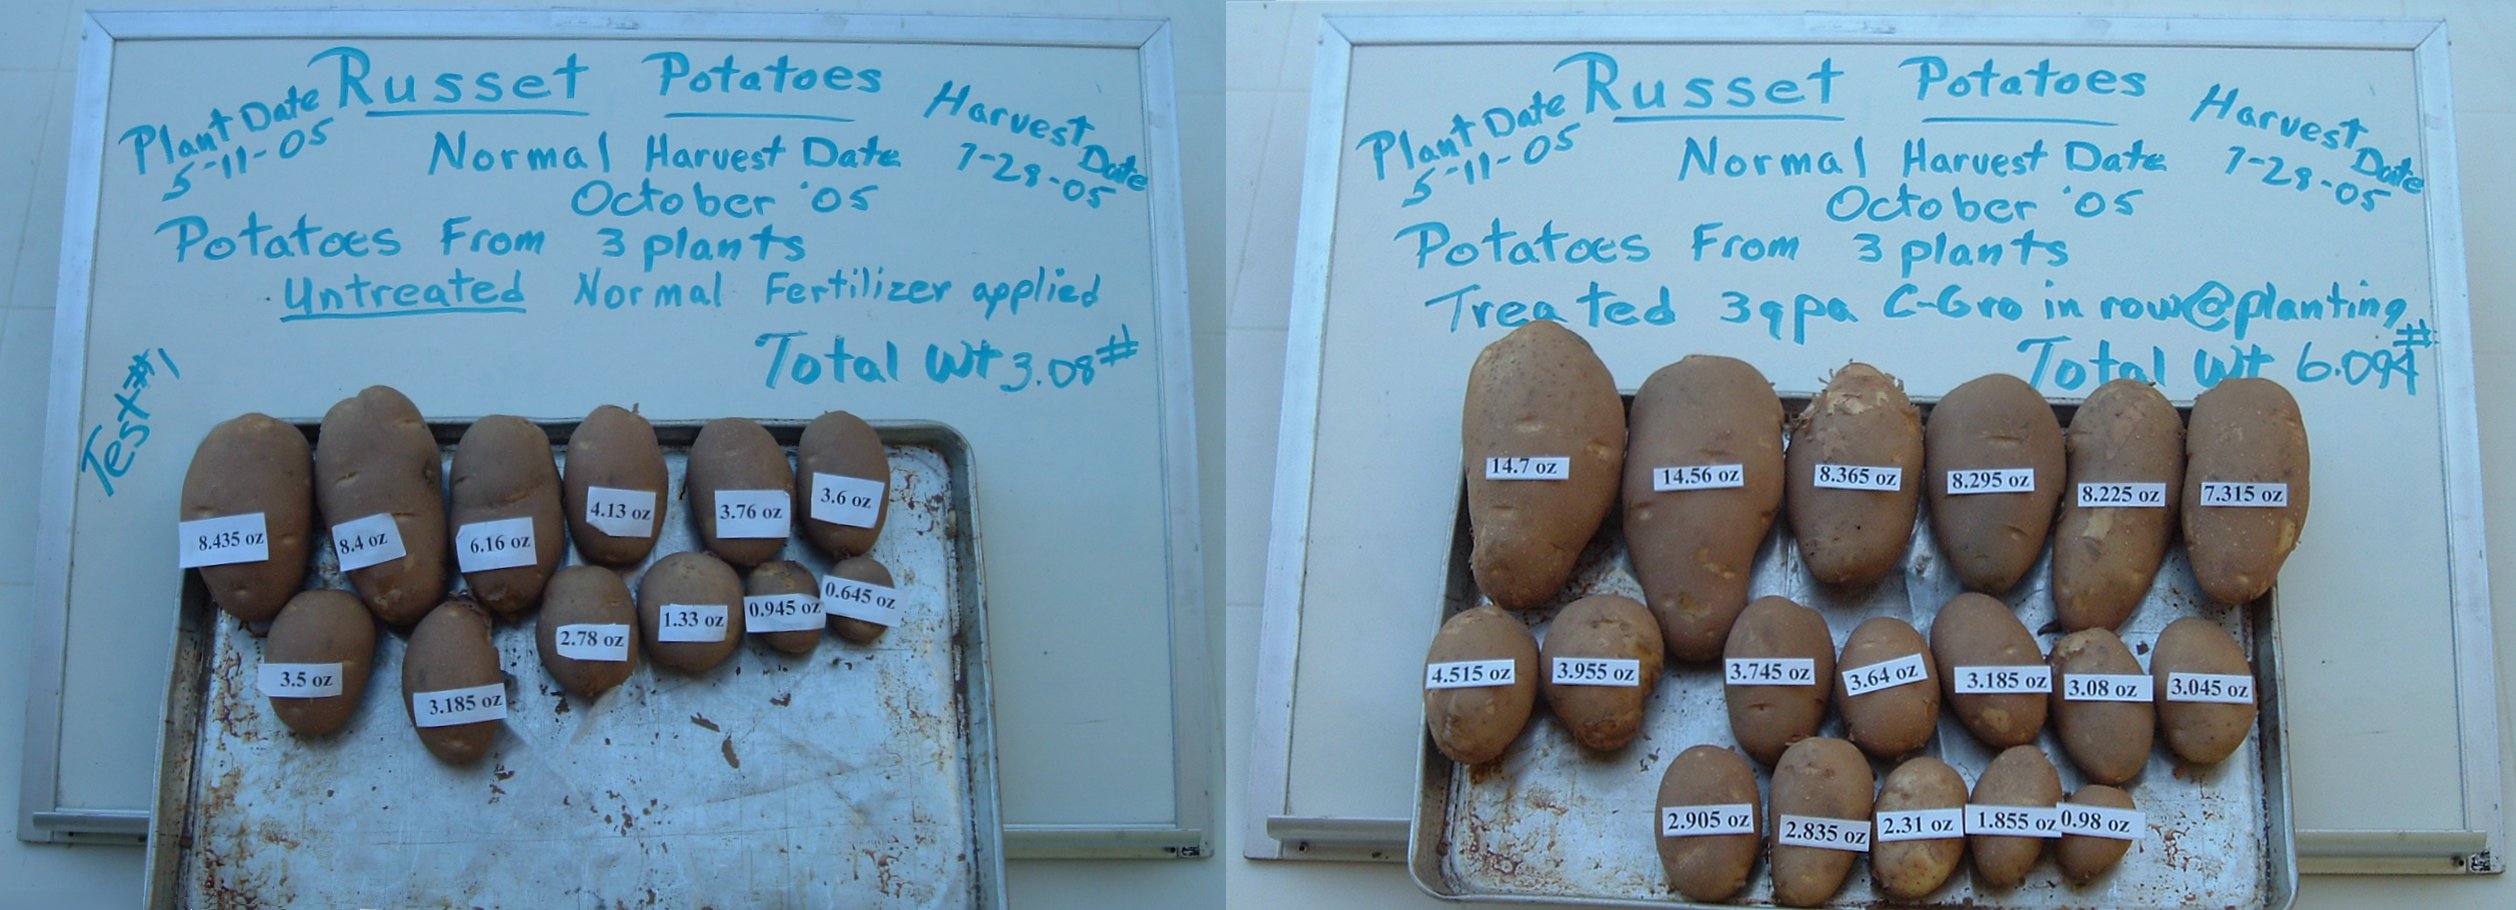 Russet Potatoes
Plant Date
5-11-05
Harvest Date
7-28-05
Normal Harvest Date
October '05
Potatoes From 3 plants
Untreated Normal Fertilizer applied
Total Wt 3.08#
Test #1
8.435 oz
8.4 oz
6.16 oz
4.13 oz
3.76 oz
3.6 oz
3.5 oz
3.185 oz
2.78 oz
1.33 oz
0.945 oz
0.645 oz
Russet Potatoes
Plant Date
5-11-05
Harvest Date
7-28-05
Normal Harvest Date
October '05
Potatoes From 3 plants
Treated 3qpa C-Gro in row@planting
Total Wt 6.094#
14.7 oz
14.56 oz
8.365 oz
8.295 oz
8.225 oz
7.315 oz
4.515 oz
3.955 oz
3.745 oz
3.64 oz
3.185 oz
3.08 oz
3.045 oz
2.905 oz
2.835 oz
2.31 oz
1.855 oz
0.98 oz